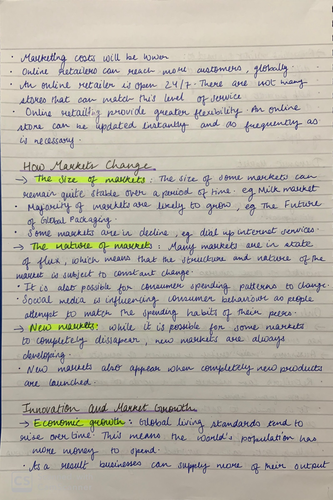 • Marketing costs will be lower
• Online retailers can reach more customers, globally.
• An online retailer is open 24/7. There are not many
stores that can match this level of service
• Online retailing provide greater flexibility. An online
store can be updated instantly and as frequently as
is necessary.
How Markets Change
→ The size of markets: The size of some markets can
remain quite stable over a period of time. eg Milk market
• Majority of markets are likely to grow, eg The Future
of Global Packaging.
• Some markets are in decline, eg dial up internet services.
→ The nature of markets: Many markets are in state
of flux, which means that the structure and nature of the
market is subject to constant change.
• It is also possible for consumer spending patterns to change.
• Social media is influencing consumer behaviour as people
attempt to match the spending habits of their peers.
→ New markets: While it is possible for some markets
to completely dissapear, new markets are always
developing.
• New markets also appear when completely new products
are launched.
Innovation and Market Growth
→ Economic growth: Global living standards tend to
rise over time. This means the world's population has
more money to spend.
• As a result businesses can supply more of their output
CS